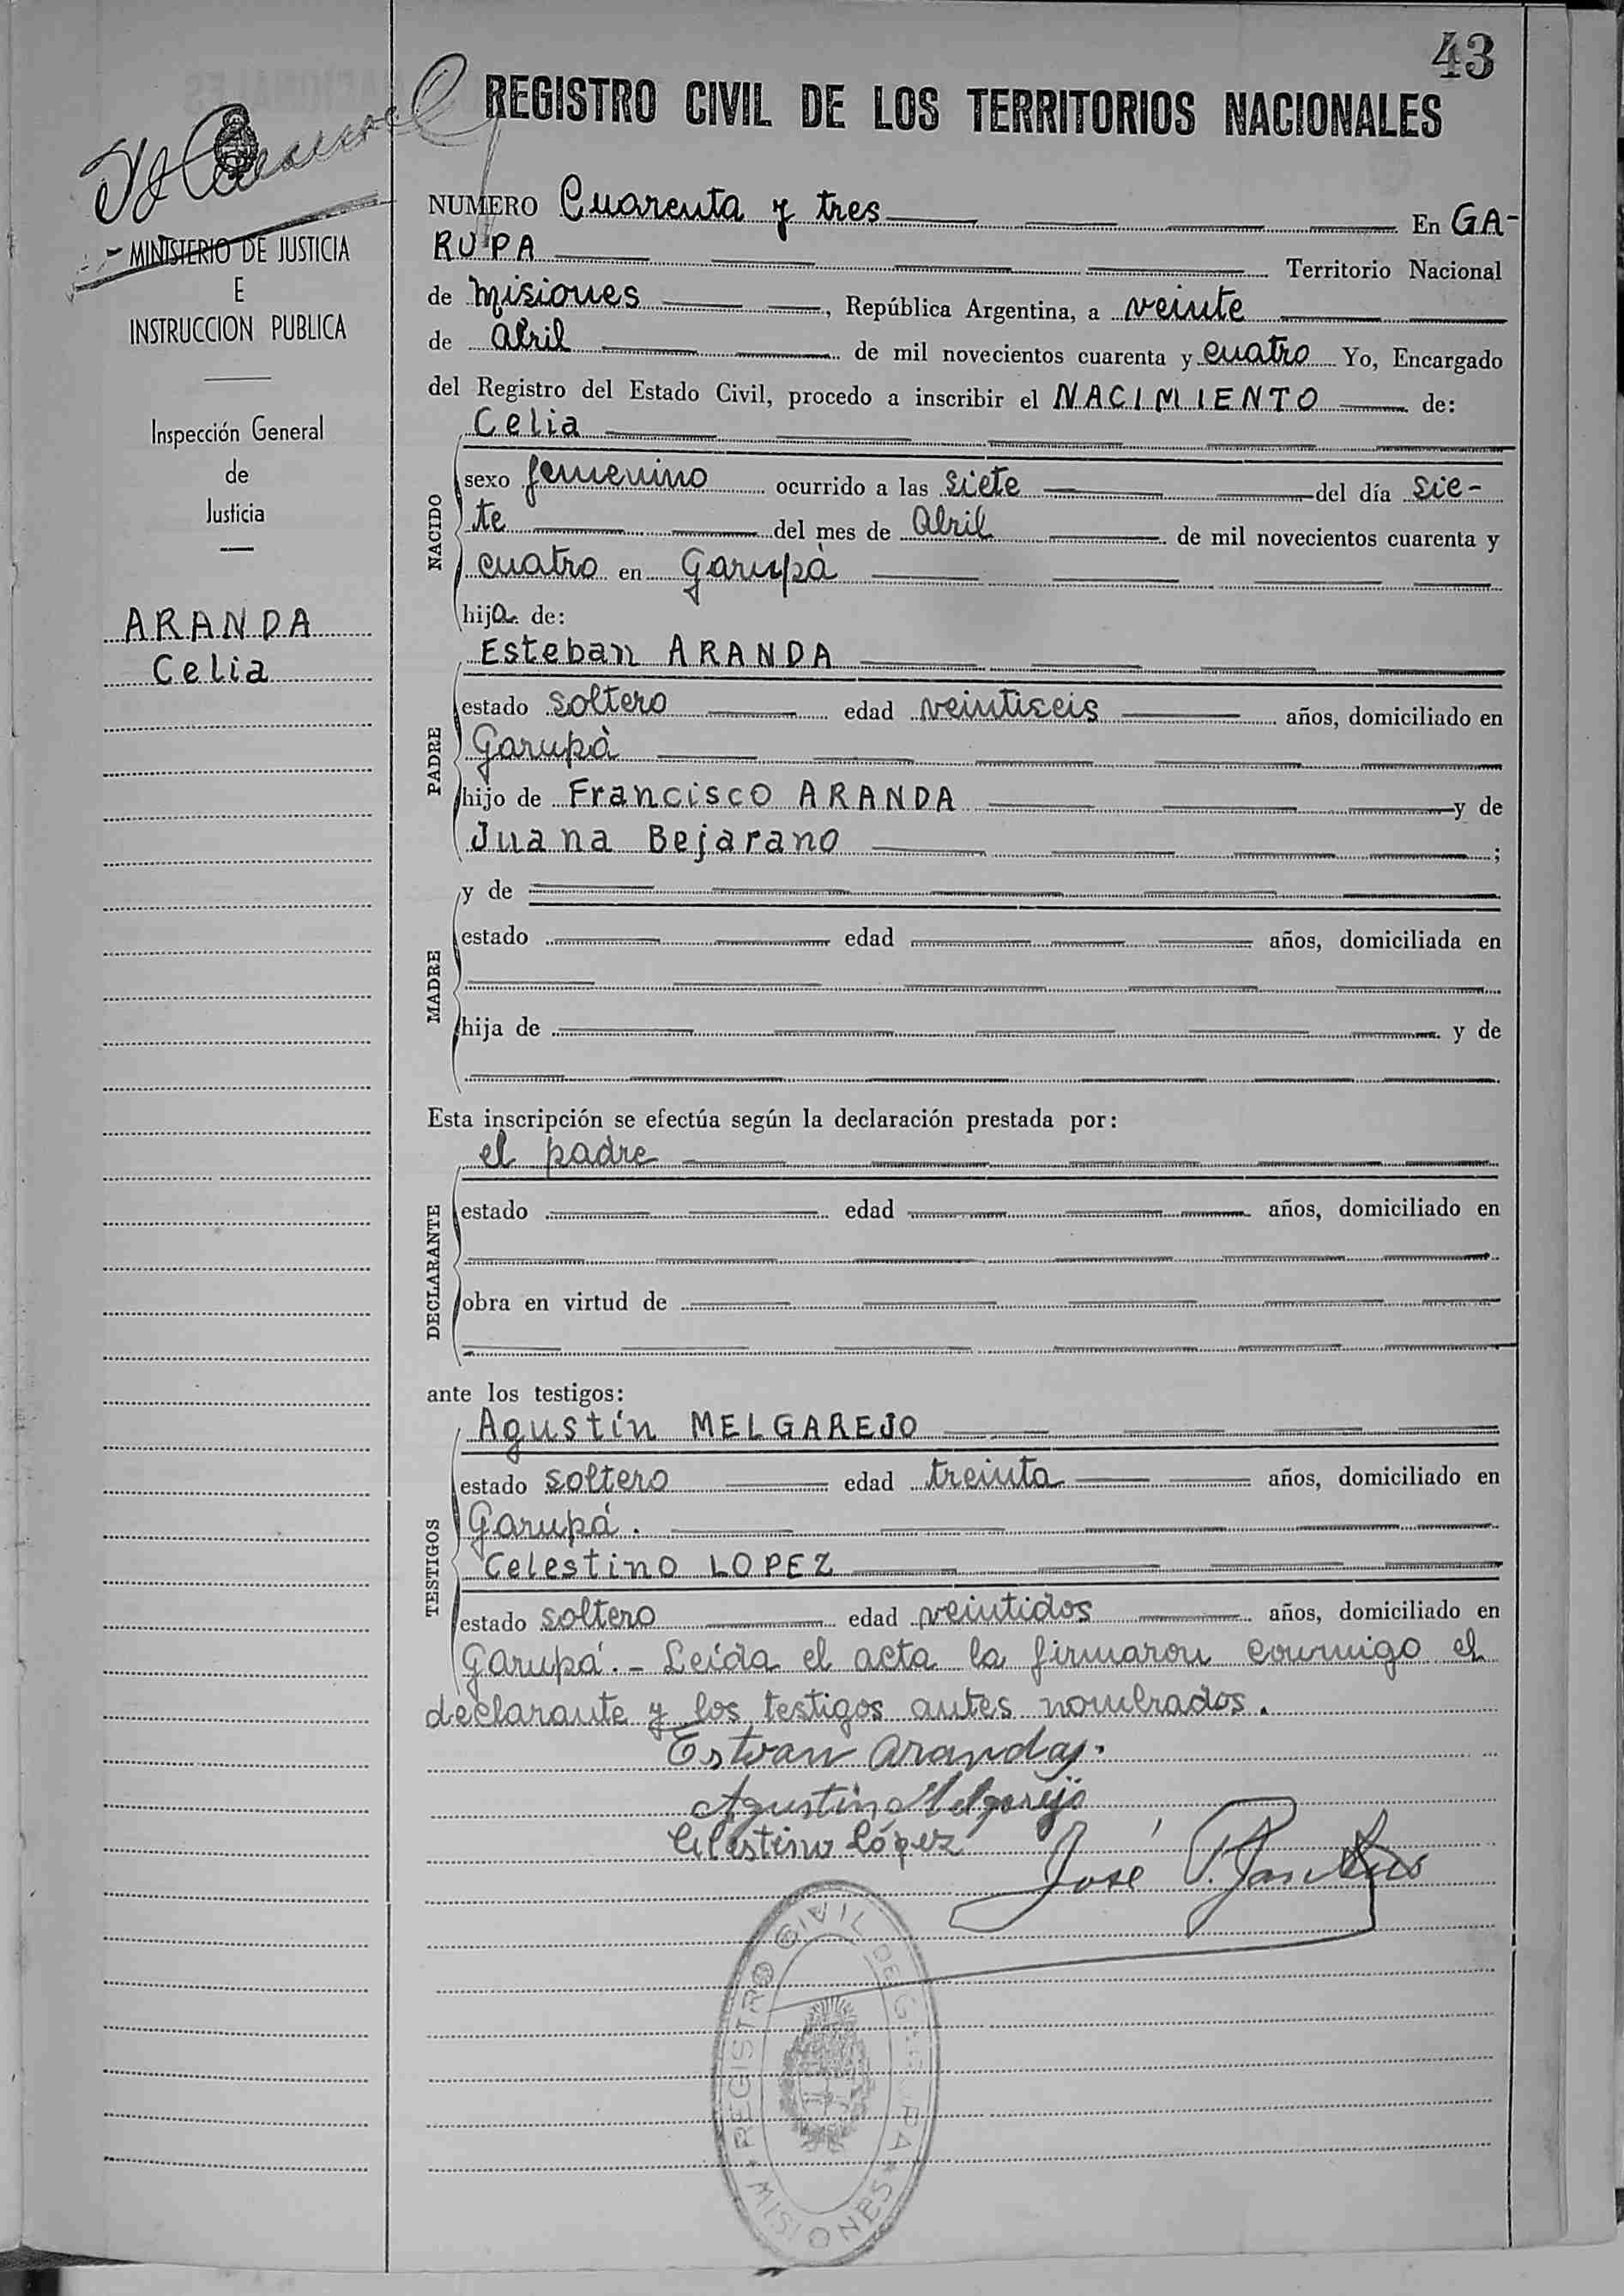 43
REGISTRO CIVIL DE LOS TERRITORIOS NACIONALES
MINISTERIO DE JUSTICIA
E
INSTRUCCION PUBLICA
Inspección General
de
Justicia
ARANDA
Celia
NUMERO Cuarenta y tres En GA-
RUPA Territorio Nacional
de Misiones, República Argentina, a veinte
de Abril de mil novecientos cuarenta y cuatro Yo, Encargado
del Registro del Estado Civil, procedo a inscribir el NACIMIENTO de:
NACIDO
Celia
sexo femenino ocurrido a las siete del día sie-
te del mes de Abril de mil novecientos cuarenta y
cuatro en Garupà
hija de:
PADRE
Esteban ARANDA
estado soltero edad veintiseis años, domiciliado en
Garupà
hijo de Francisco ARANDA y de
Juana Bejarano ;
MADRE
y de
estado edad años, domiciliada en
hija de y de
Esta inscripción se efectúa según la declaración prestada por:
DECLARANTE
el padre
estado edad años, domiciliado en
obra en virtud de
ante los testigos:
TESTIGOS
Agustín MELGAREJO
estado soltero edad treinta años, domiciliado en
Garupá.
Celestino LOPEZ
estado soltero edad veintidos años, domiciliado en
Garupá.- Leída el acta la firmaron conmigo el
declarante y los testigos antes nombrados.
Estvan Aranda.
Agustin Melgarejo
Celestino López
José
REGISTRO CIVIL DE GARUPA
MISIONES